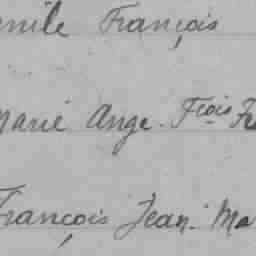 mile François
Marie Ange. Fçois Fr
François Jean. Ma